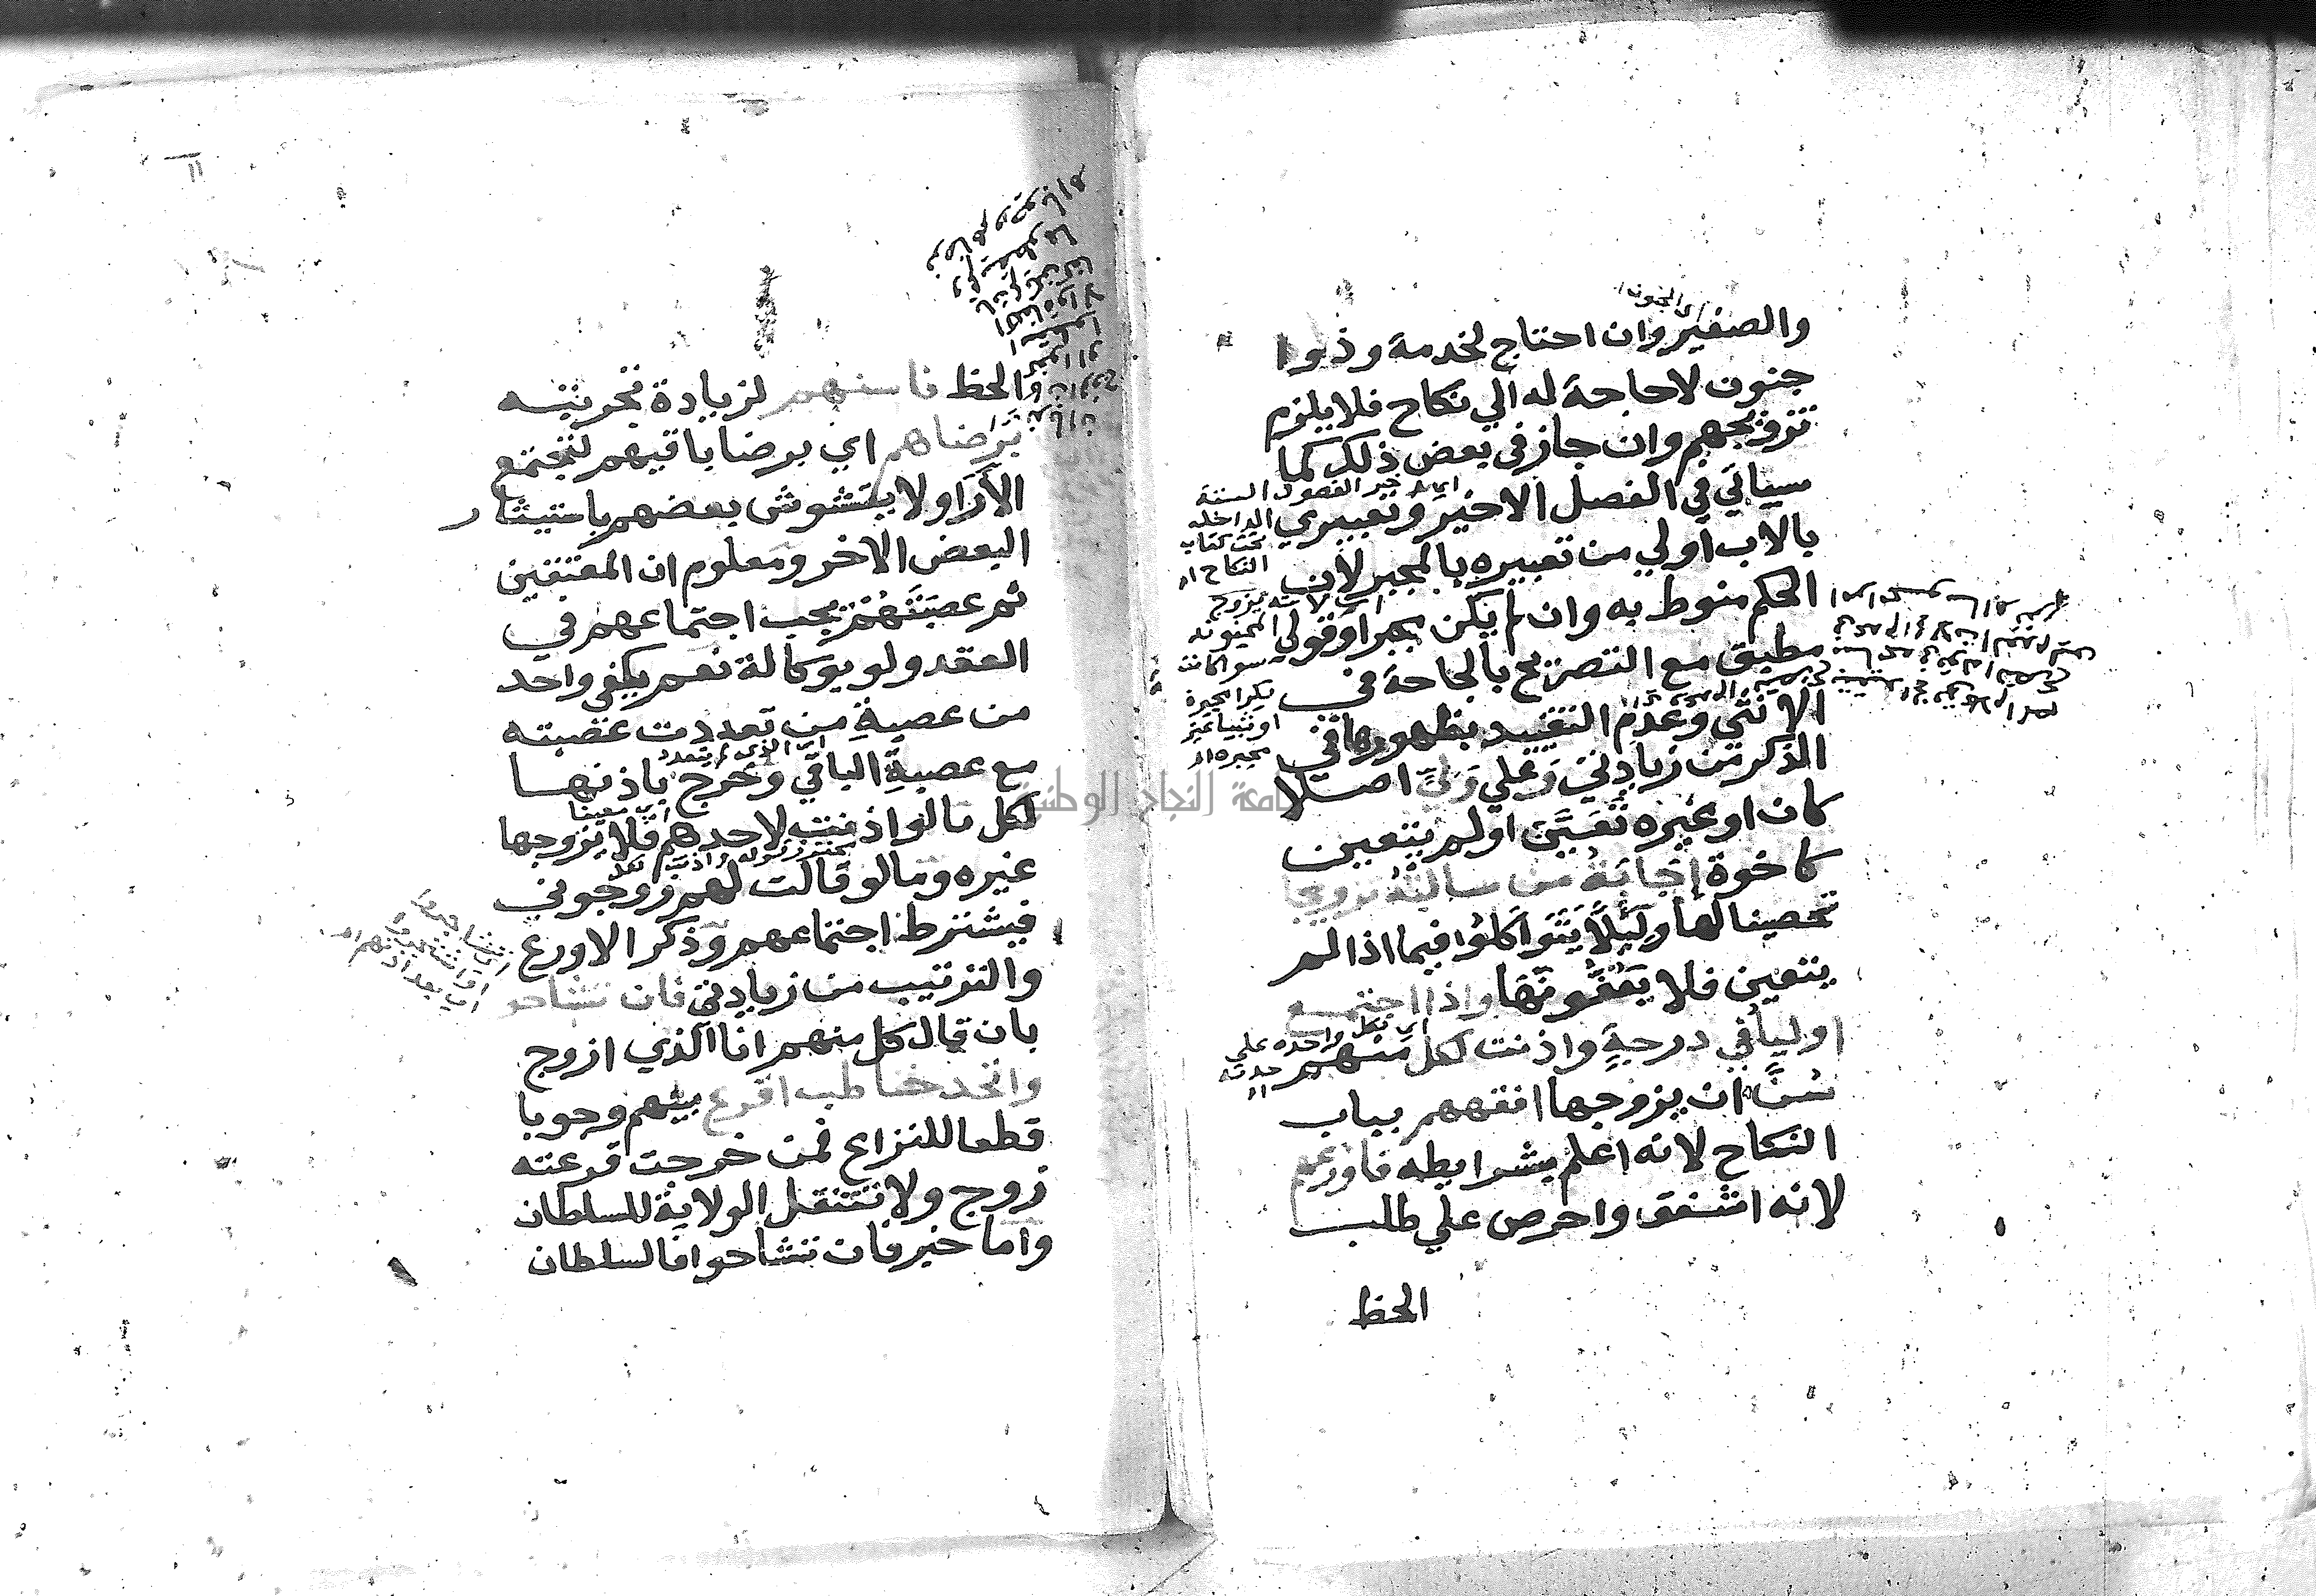 والصغير وان احتاج لخدمة وذوا
جنون لا حاجة له الي نكاح فلا يلزم
تزويجهم وان جاز في بعض ذلك كما
سياتي في الفصل الاخير وتعبيري
بالاب اولي من تعبيره بالمجبر لان
الحكم منوط به وان لم يكن مجبرا وقولي
مطبق مع التصريح بالحاجة في
الانثي وعدم التقييد بظهورها في
الذكر من زيادتي وعلي ولي اصلا
كان او غيره تعين او لم يتعين
كاخوة إجابة من سالته تزويجا
تحصينا لها ولئلا يتواكلوا فيما اذا لم
يتعين فلا يعفونها واذا اجتمع
اوليا في درجة واذنت لكل منهم
سن ان يزوجها افقههم بباب
النكاح لانه اعلم بشرايطه فاورعهم
لانه اشفق واحرص علي طلب
الحظ
اي الجنون
السنة
الداخله
تحت كتاب
النكاح اه
المجنونه
سوا كانت
بكرا مجبرة
او ثيبا غير
مجبره اه
اي لكل واحده علي
حدته اه
١١
الحظ فاسنهم لزيادة تجربته
برضاهم اي برضا باقيهم لتجتمع
الأرا ولا يتشوش بعضهم باستيثار
البعض الاخر ومعلوم ان المعتقين
ثم عصبتهم يجب اجتماعهم في
العقد ولو بوكالة نعم يكفي واحد
من عصبة من تعددت عصبته
مع عصبة الباقي وخرج باذنها
لكل ما لو اذنت لاحدهم فلا يزوجها
غيره وما لو قالت لهم زوجوني
فيشترط اجتماعهم وذكر الاورع
والترتيب من زيادتي فان تشاحوا
بان قال كل منهم انا الذي ازوج
واتحد خاطب اقرع بينهم وجوبا
قطعا للنزاع فمن خرجت قرعته
زوج ولا تنتقل الولاية للسلطان
واما خبر فان تشاحوا فالسلطان
اي الذي لم يتعدد
اي معينا
محترز قوله واذنت لكل
جامعة النجاح الوطنية